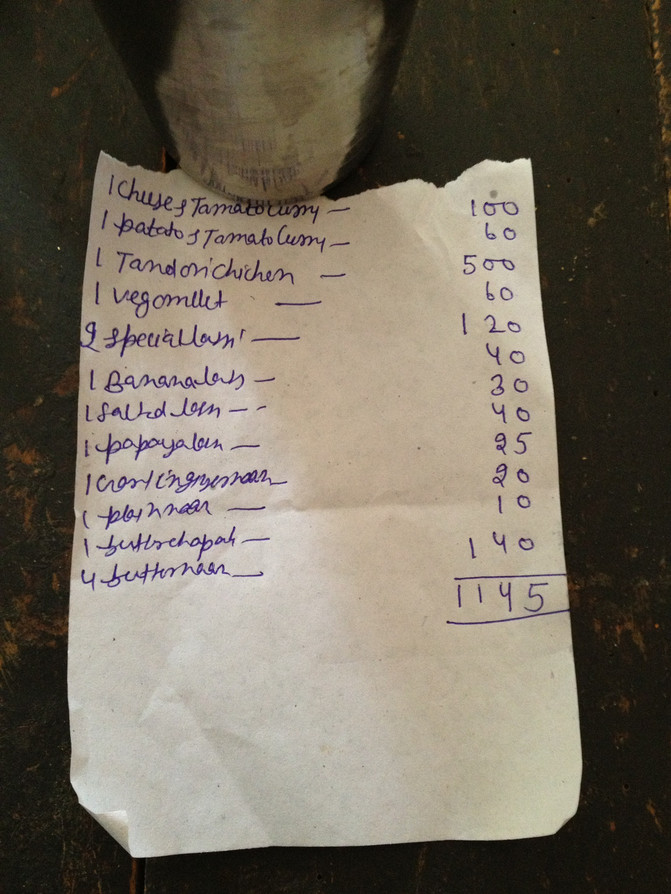 1 Cheese & Tamato Curry — 100
1 patato & Tamato Curry — 60
1 Tandori chicken — 500
1 veg omllet — 60
2 special lassi — 120
1 Banana lassi — 40
1 salted lassi — 30
1 papaya lassi — 40
1 naan 25
1 plain naan — 20
1 butter chapati — 10
4 butter naan — 140
1145